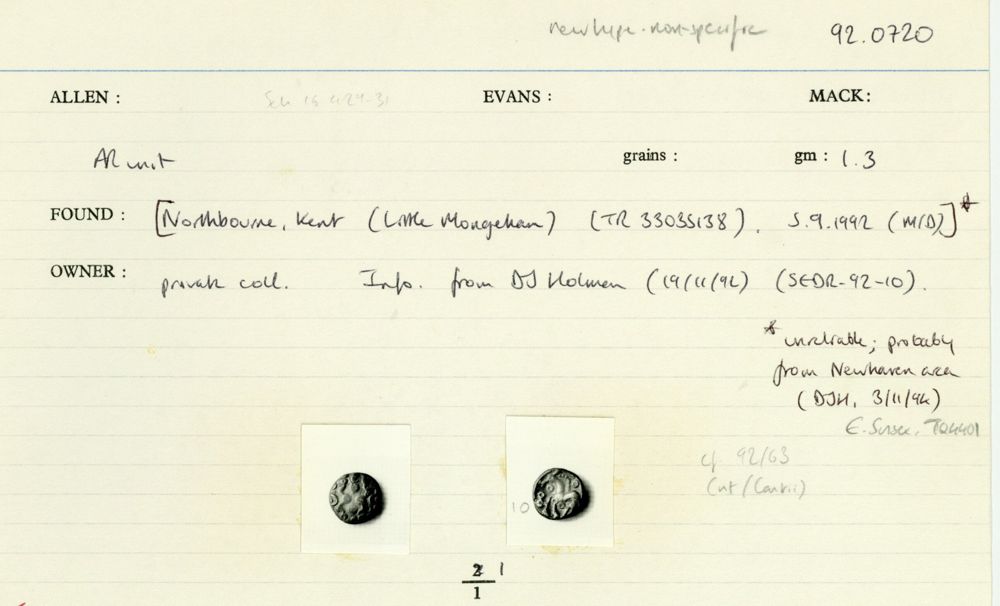 new type. non-specific 92.0720
ALLEN : Sch 15 429-31 EVANS : MACK:
AR unit grains : gm : 1.3
FOUND : [Northbourne, Kent (Little Mongeham) (TR 33035138). 5.9.1992 (M/D)]*
OWNER : private coll. Info. from DJ Holman (19/11/92) (SEDR-92-10).
* unreliable; probably
from Newhaven area
(DJH, 3/11/94)
E. Sussex, TQ4401
cf 92/63
(unt/Cantii)
10
2 1
1